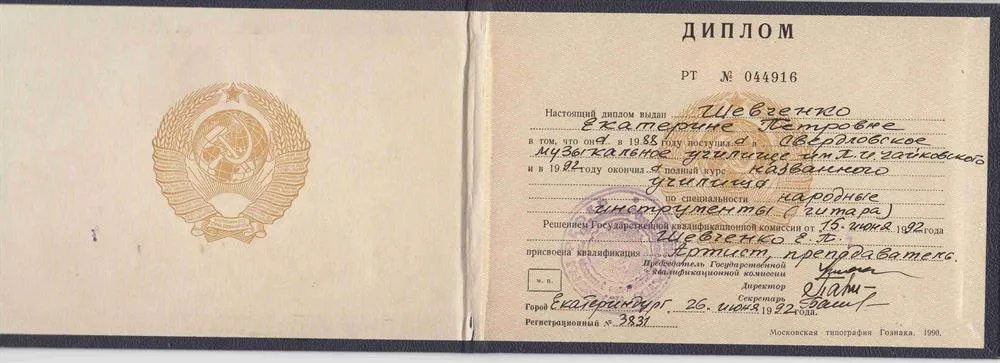 ДИПЛОМ
РТ № 044916
Настоящий диплом выдан Шевченко
Екатерине Петровне
в том, что она в 1988 году поступила в Свердловское
музыкальное училище им. П.И. Чайковского
и в 1992 году окончила полный курс названного
училища
по специальности народные
инструменты (гитара)
Решением Государственной квалификационной комиссии от 15 июня 1992 года
Шевченко Е.П.
присвоена квалификация Артист, преподаватель.
Председатель Государственной
квалификационной комиссии
Директор
Секретарь
М. П.
Город Екатеринбург, 26 июня 1992 года
Регистрационный № 3831
Московская типография Гознака. 1990.